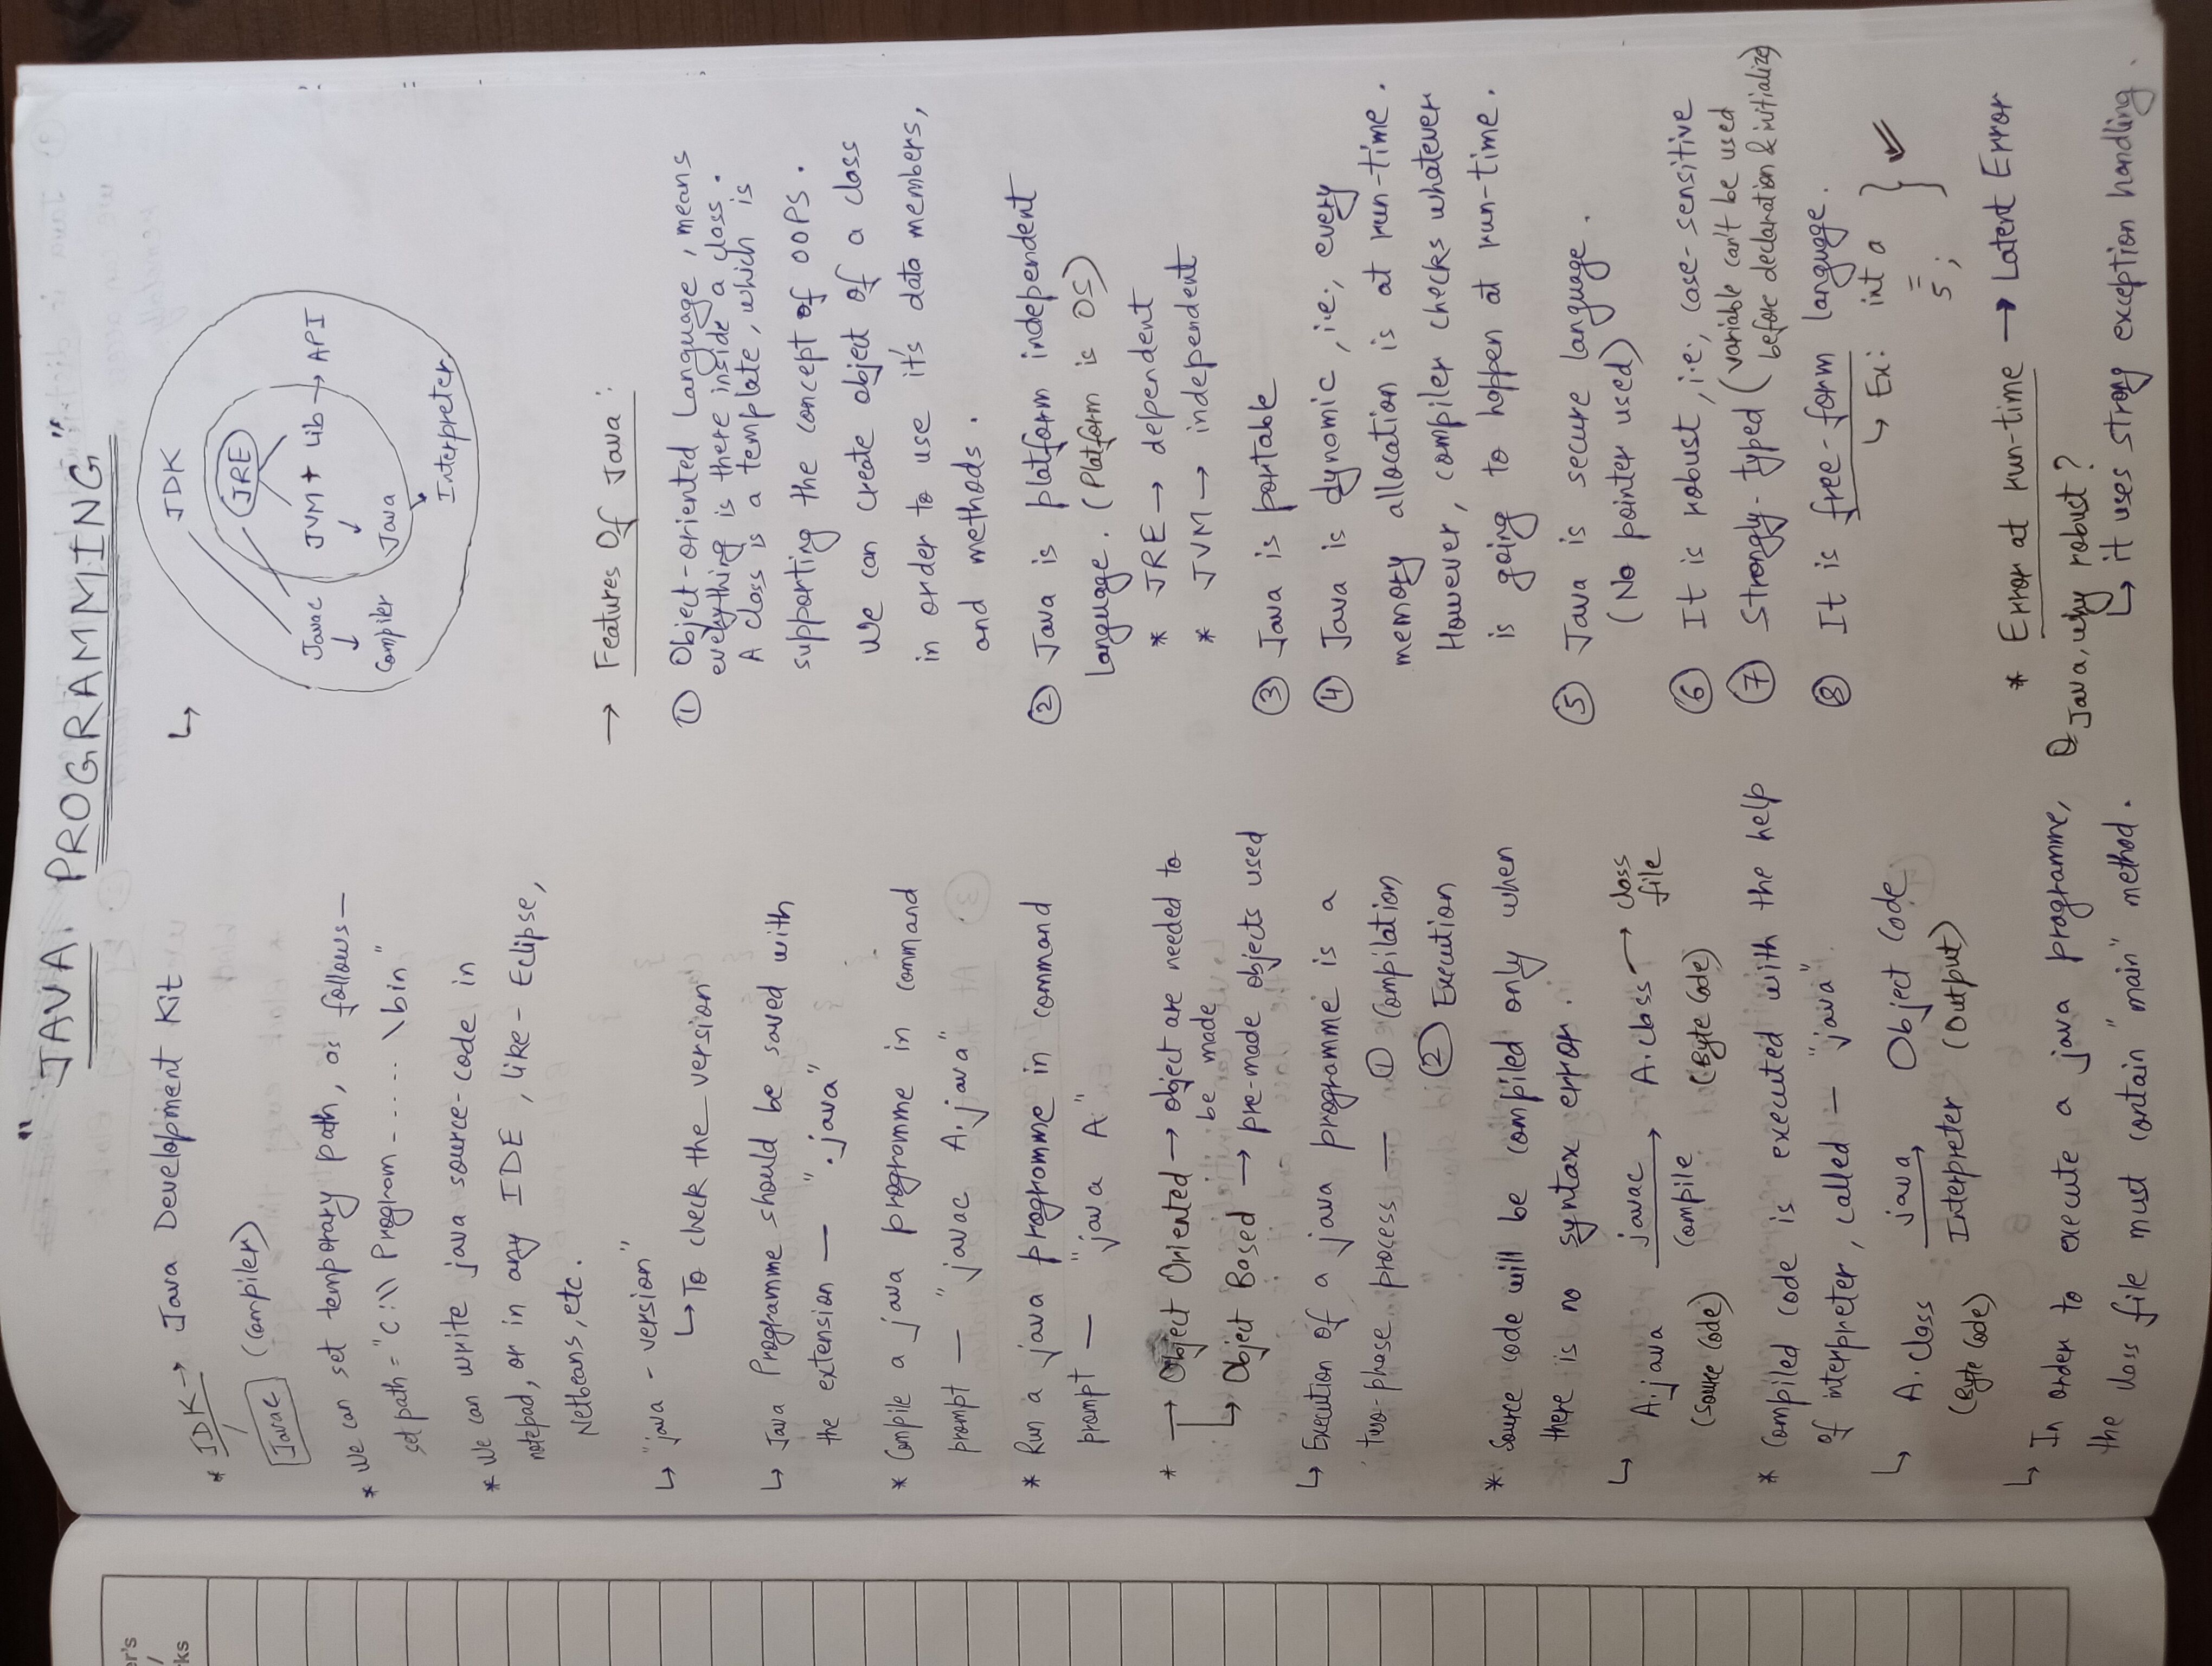 " JAVA PROGRAMMING "
* JDK → Java Development Kit
Javac (Compiler)
* We can set temporary path, as follows —
set path = "C:\\ Program - ..... \bin"
* We can write java source-code in
notepad, or in any IDE, like - Eclipse,
Netbeans, etc.
↳ "java - version"
↳ To check the version
↳ Java Programme should be saved with
the extension — ".java"
* Compile a java programme in command
prompt — "javac A.java"
* Run a java programme in command
prompt — "java A"
* → Object Oriented → object are needed to
be made
↳ Object Based → pre-made objects used
↳ Execution of a java programme is a
two-phase process — ① Compilation
② Execution
* Source code will be compiled only when
there is no syntax error.
↳ A.java javac A.class → class
file
compile
(Source Code) (Byte Code)
* Compiled code is executed with the help
of interpreter, called — "java"
↳ A.class java Object Code
(Byte Code) Interpreter (Output)
↳ In order to execute a java programme,
the class file must contain "main" method.
↳ JDK
JRE
Javac JVM + Lib → API
↓ ↓
Compiler Java
Interpreter
→ Features Of Java :
① Object-oriented Language, means
everything is there inside a class.
A class is a template, which is
supporting the concept of OOPS.
We can create object of a class
in order to use it's data members,
and methods.
② Java is platform independent
Language. (Platform is OS)
* JRE → dependent
* JVM → independent
③ Java is portable
④ Java is dynamic, i.e., every
memory allocation is at run-time.
However, compiler checks whatever
is going to happen at run-time.
⑤ Java is secure language.
(No pointer used)
⑥ It is robust, i.e., case-sensitive
⑦ Strongly-typed (variable can't be used
before declaration & initialize)
⑧ It is free-form language.
↳ Ex: int a
=
5 ;
* Error at run-time → Latent Error
Q Java, why robust?
↳ it uses strong exception handling.
er's
/
rks